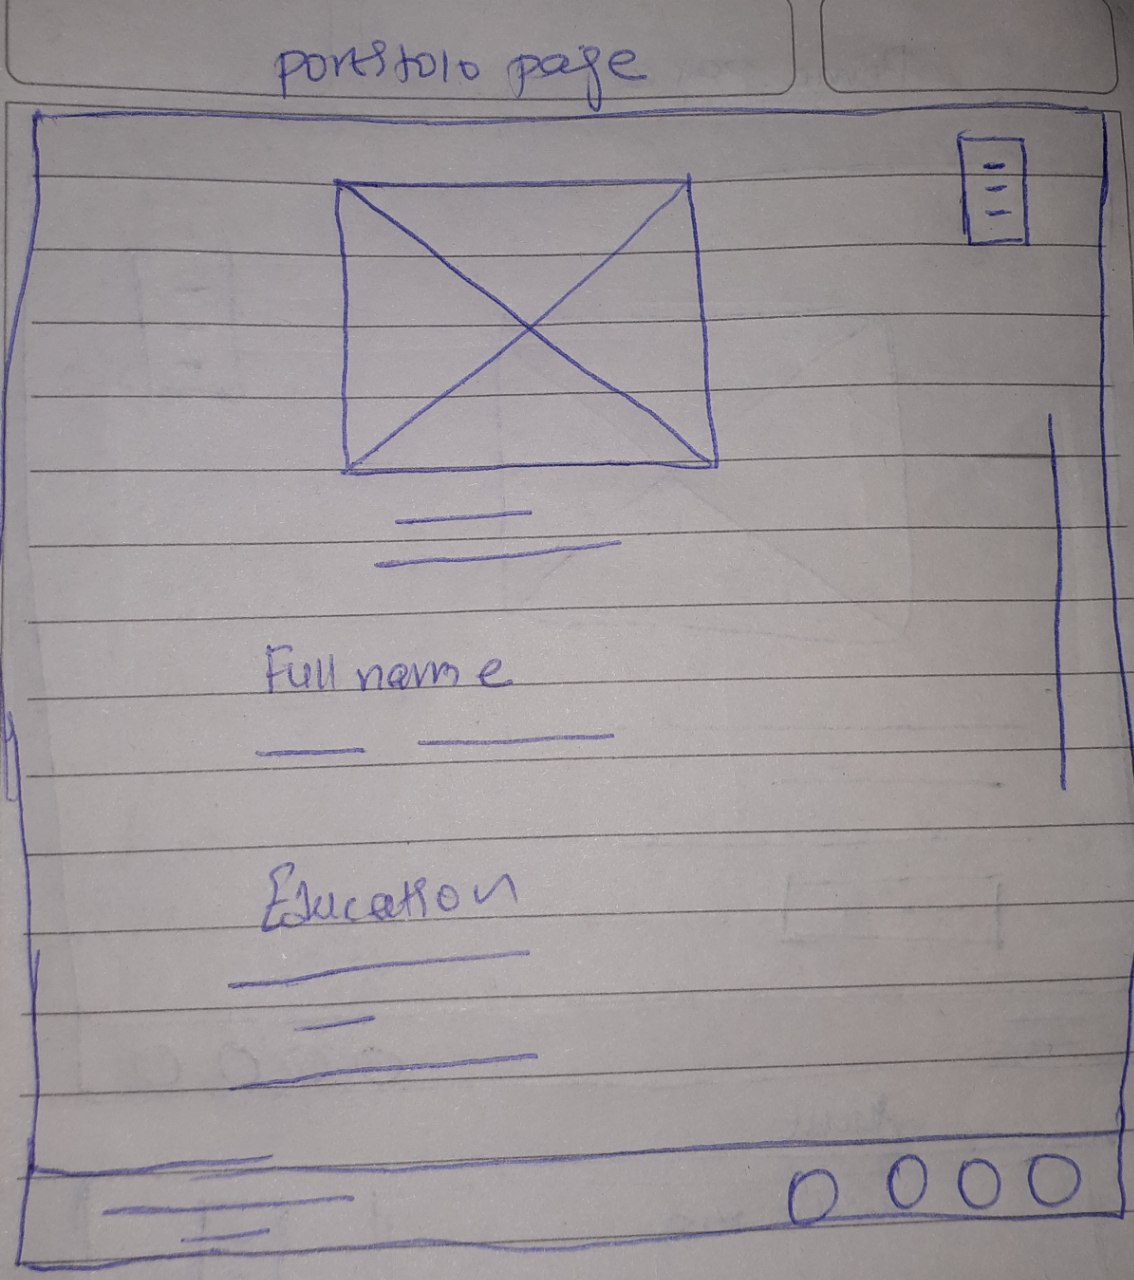 portfolo page
Full name
Education